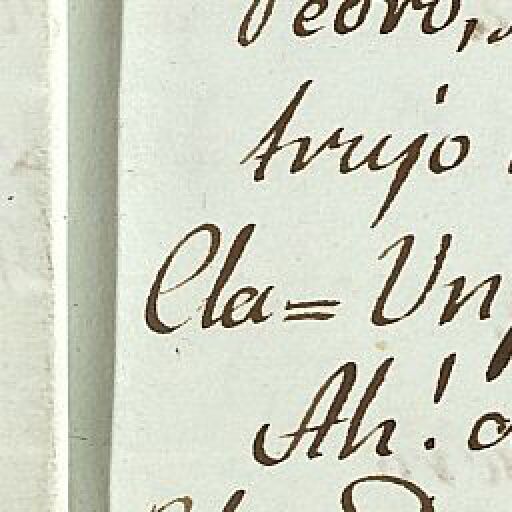 Pedro,
trujo
Cla= Un
Ah!